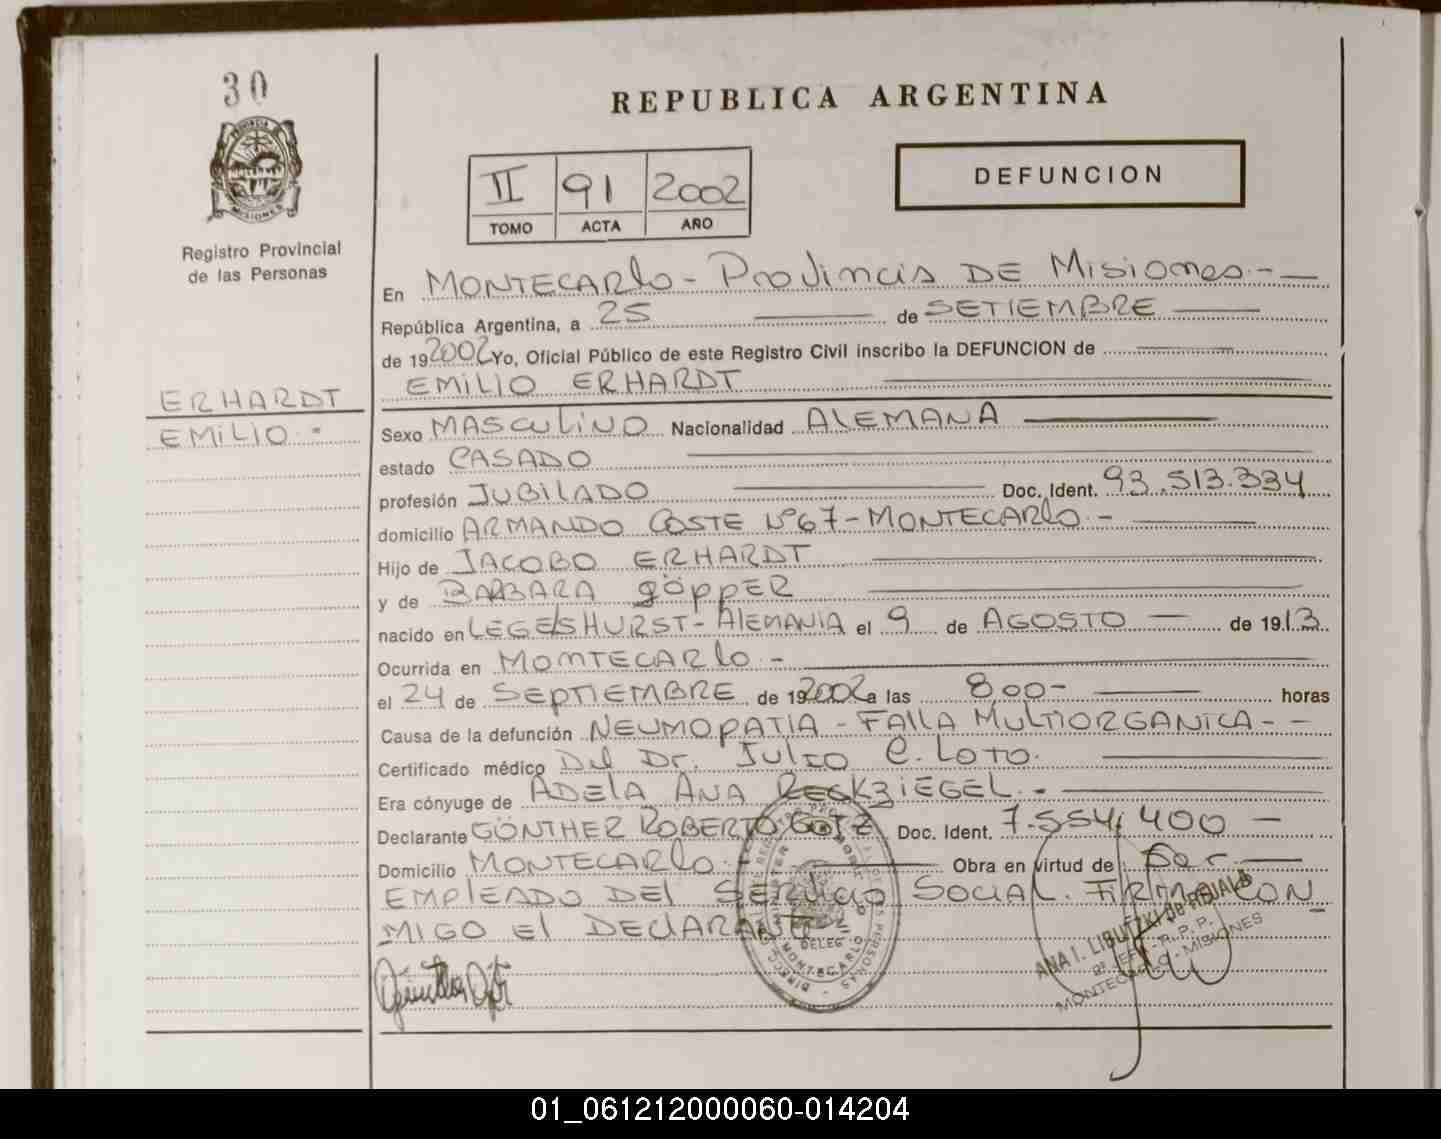 30
REPUBLICA ARGENTINA
PROVINCIA DE MISIONES
Registro Provincial
de las Personas
II 91 2002
TOMO ACTA AÑO
DEFUNCION
En MONTECARLO - PROVINCIA DE MISIONES.-
República Argentina, a 25 de SETIEMBRE
de 192002 Yo, Oficial Público de este Registro Civil inscribo la DEFUNCION de
EMILIO ERHARDT
ERHARDT
EMILIO.-
Sexo MASCULINO Nacionalidad ALEMANA
estado CASADO
profesión JUBILADO Doc. Ident. 93.513.334
domicilio ARMANDO COSTE Nº67-MONTECARLO.-
Hijo de JACOBO ERHARDT
y de BARBARA göppER
nacido en LEGELSHURST- AlEMANIA el 9 de AGOSTO de 1913
Ocurrida en MONTECARLO.-
el 24 de SEPTIEMBRE de 192002 a las 800- horas
Causa de la defunción NEUMOPATIA - FALLA MULTIORGANICA--
Certificado médico Del Dr. JULIO C. LOTO.
Era cónyuge de ADELA ANA RECKZIEGEL.-
Declarante GÜNTHER ROBERTO GOTZ Doc. Ident. 7.554.400 -
Domicilio MONTECARLO.- Obra en virtud de Ser
EMPLEADO DEL SERVICIO SOCIAL. FIRMA CON_
MIGO El DECLARANTE
DELEG.
MONTECARLO
ANA I. LIBUTZKI de REJALA
R. P. P.
MONTECARLO - MISIONES
01_061212000060-014204